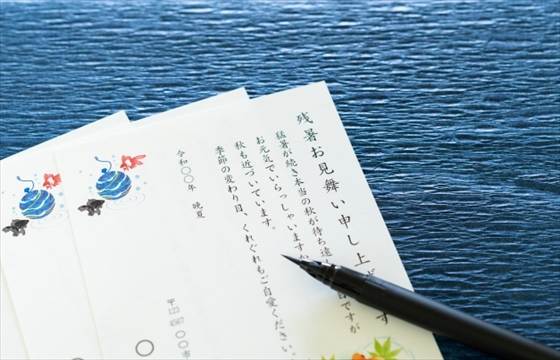 残暑お見舞い申し上げます
猛暑が続き本当の秋が待ち遠
ですが
お元気でいらっしゃいますか
秋も近づいています。
季節の変わり目、くれぐれもご自愛ください。
令和〇〇年 晩夏